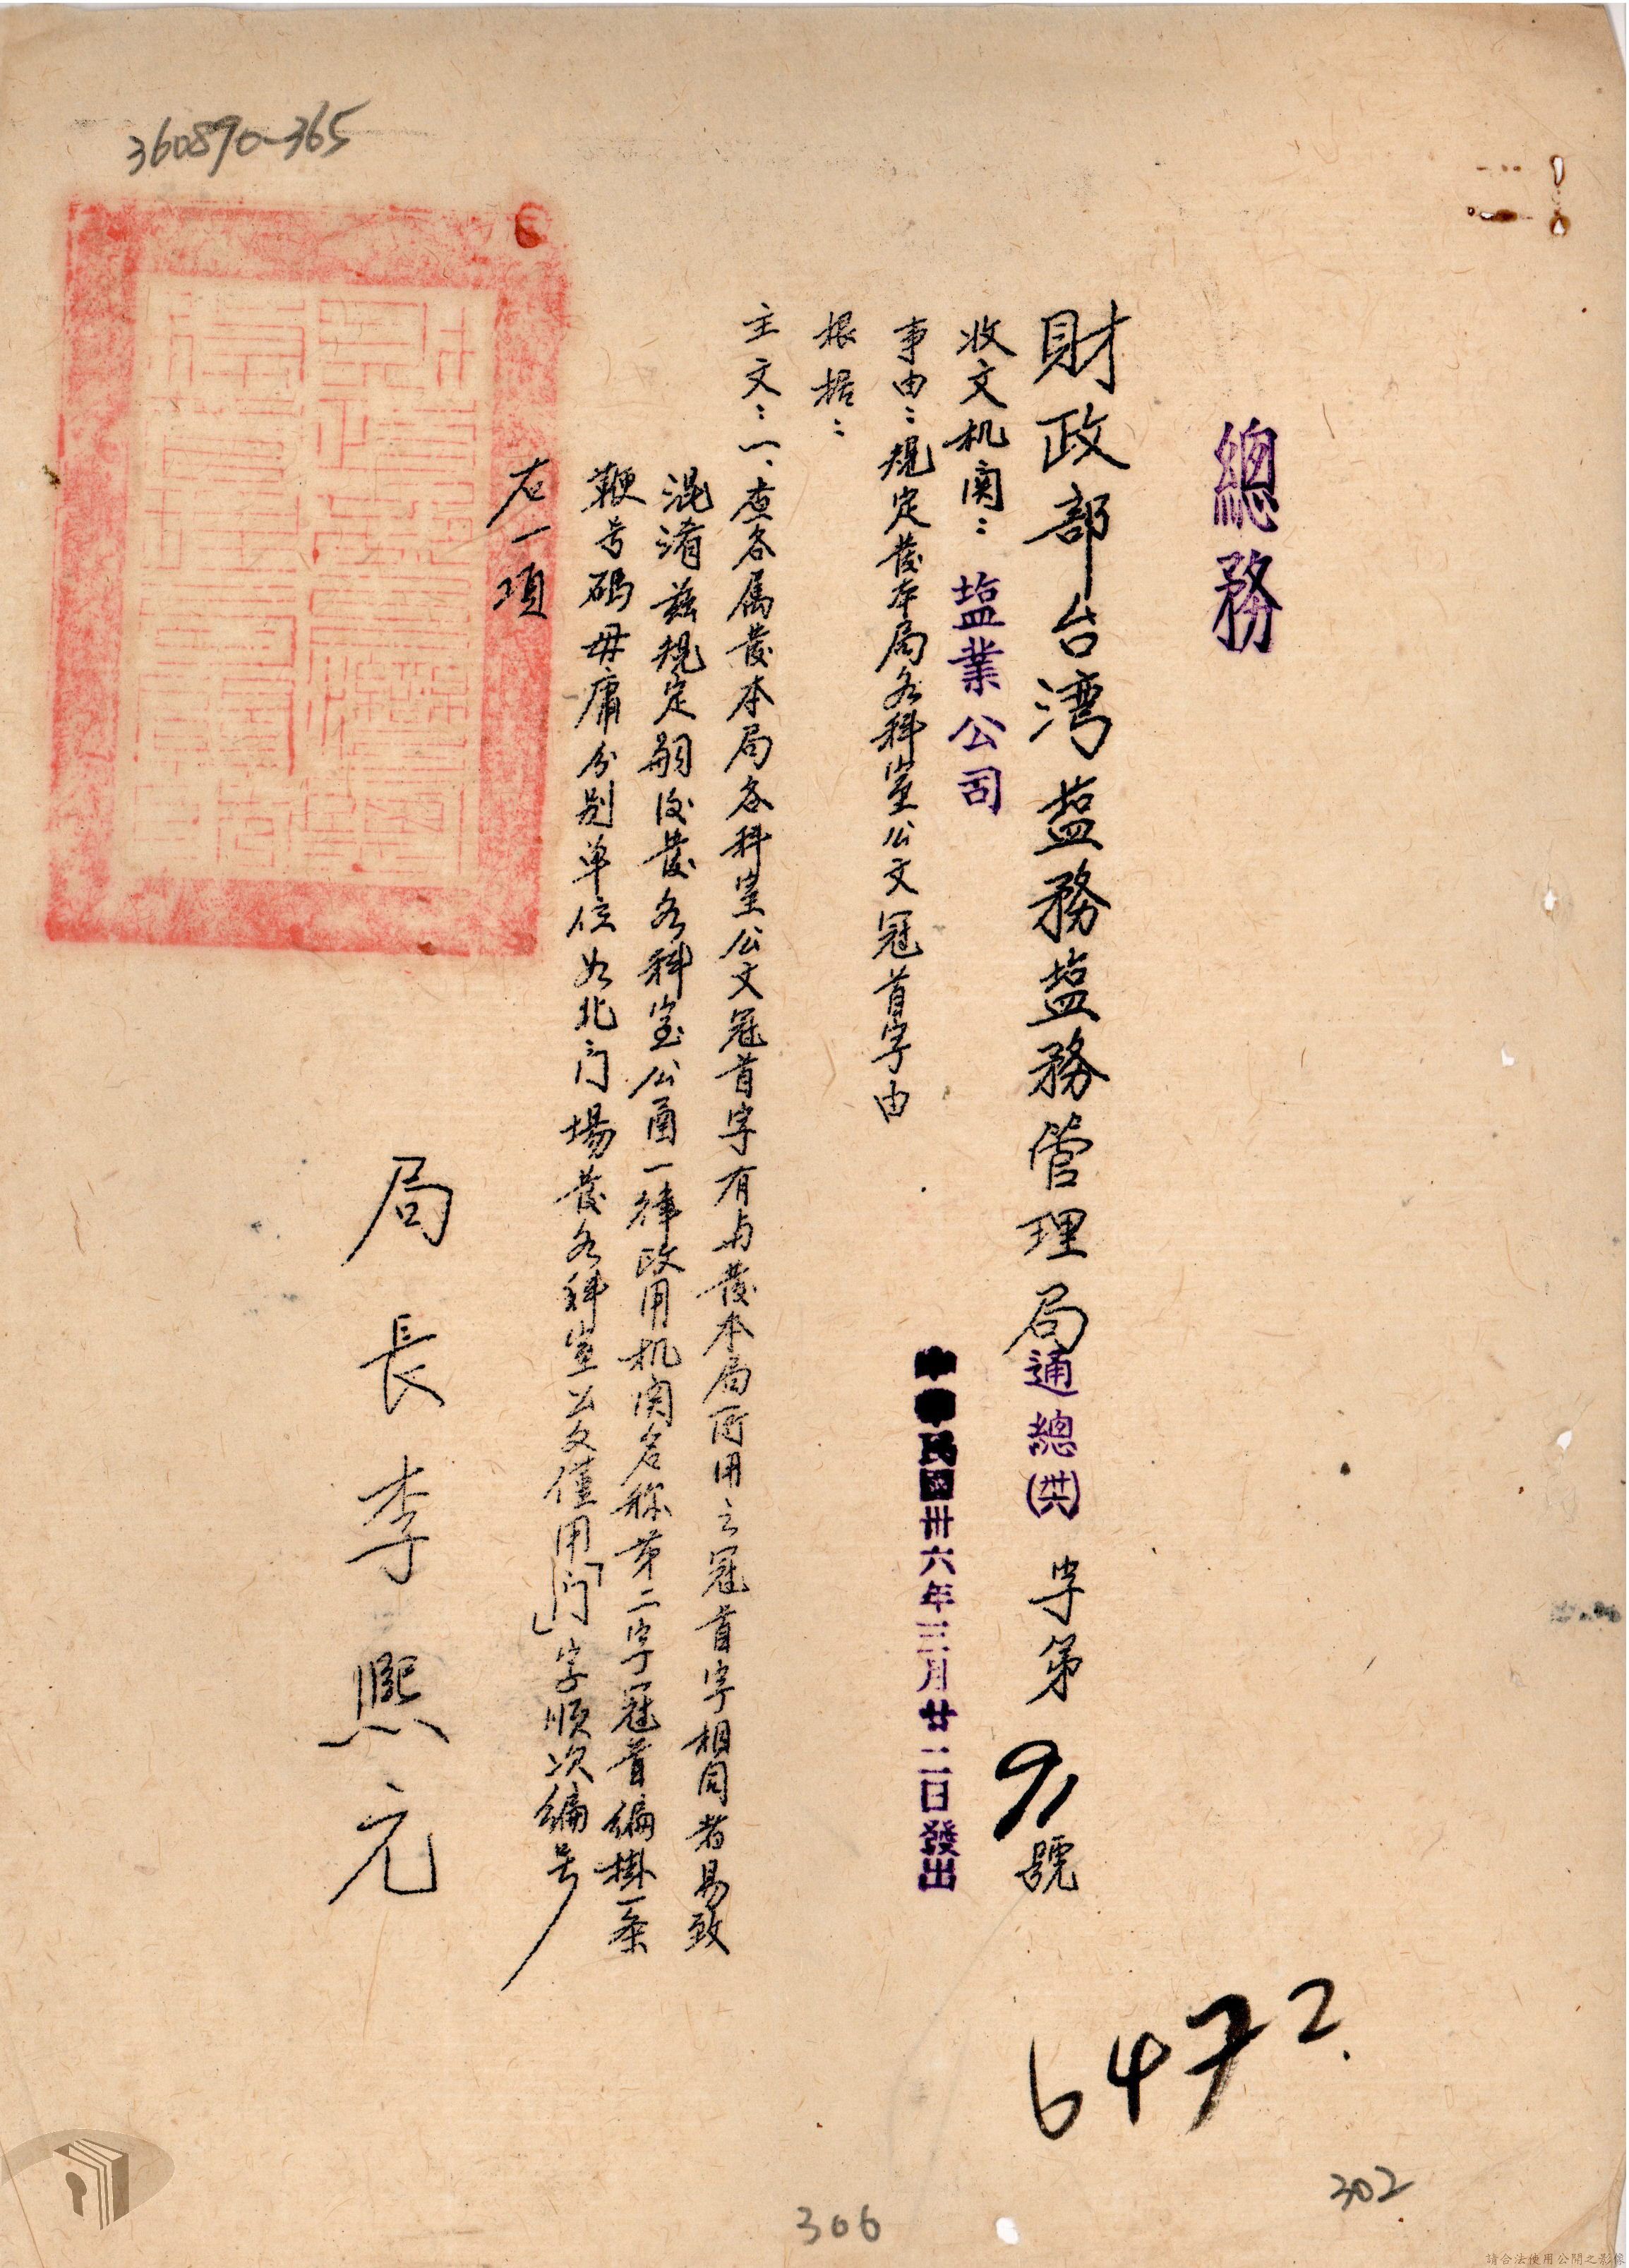 總務
財政部台湾塩務塩務管理局通總(卅六)字第91號
收文机関：塩業公司
中華民國卅六年三月廿二日發出
事由：規定發本局各科室公文冠首字由
根据：
主文：一、查各属發本局各科室公文冠首字有与發本局所用之冠首字相同者易致
混淆兹規定嗣後發各科室公函一律改用机関名称第二字冠首編掛一条
鞭号碼毋庸分别单位如北门場發各科室公文僅用「门」字順次編号
右一項
局長李熙元
360890-365
6472
302
306
請合法使用公開之影像